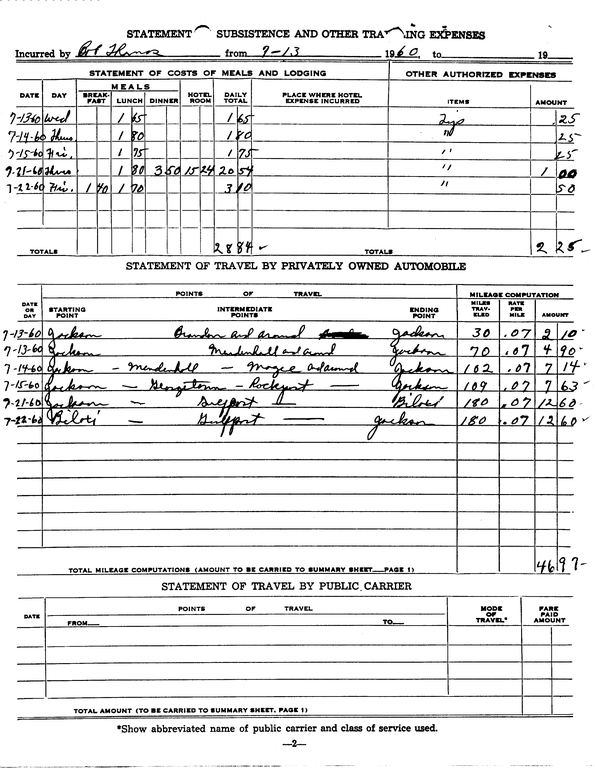 STATEMENT SUBSISTENCE AND OTHER TRAVELING EXPENSES
Incurred by Bob Thomas from 7-13 1960, to 19
STATEMENT OF COSTS OF MEALS AND LODGING OTHER AUTHORIZED EXPENSES
MEALS
DATE DAY BREAK-FAST LUNCH DINNER HOTEL ROOM DAILY TOTAL PLACE WHERE HOTEL EXPENSE INCURRED ITEMS AMOUNT
7-13-60 Wed 1 65 1 65 Tips .25
7-14-60 Thurs 1 80 1 80 " 25
7-15-60 Fri. 1 75 1 75 " 25
7-21-60 Thurs 1 80 3 50 15 24 20 54 " 1 00
7-22-60 Fri. 1 40 1 70 3 10 " 50
TOTALS 28 84 TOTALS 2 25
STATEMENT OF TRAVEL BY PRIVATELY OWNED AUTOMOBILE
POINTS OF TRAVEL MILEAGE COMPUTATION
DATE OR DAY STARTING POINT INTERMEDIATE POINTS ENDING POINT MILES TRAV-ELED RATE PER MILE AMOUNT
7-13-60 Jackson Brandon and around Jackson 30 .07 2 10
7-13-60 Jackson Mendenhall and around Jackson 70 .07 4 90
7-14-60 Jackson - Mendenhall - Magee and around Jackson 102 .07 7 14
7-15-60 Jackson - Georgetown - Rockport - Jackson 109 .07 7 63
7-21-60 Jackson - Gulfport Biloxi 180 .07 12 60
7-22-60 Biloxi - Gulfport - Jackson 180 .07 12 60
TOTAL MILEAGE COMPUTATIONS (AMOUNT TO BE CARRIED TO SUMMARY SHEET PAGE 1) 46 97
STATEMENT OF TRAVEL BY PUBLIC CARRIER
DATE POINTS OF TRAVEL MODE OF TRAVEL* FARE PAID AMOUNT
FROM TO
TOTAL AMOUNT (TO BE CARRIED TO SUMMARY SHEET, PAGE 1)
*Show abbreviated name of public carrier and class of service used.
—2—